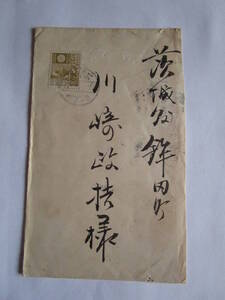 茨城県鉾田町
川崎政扶様